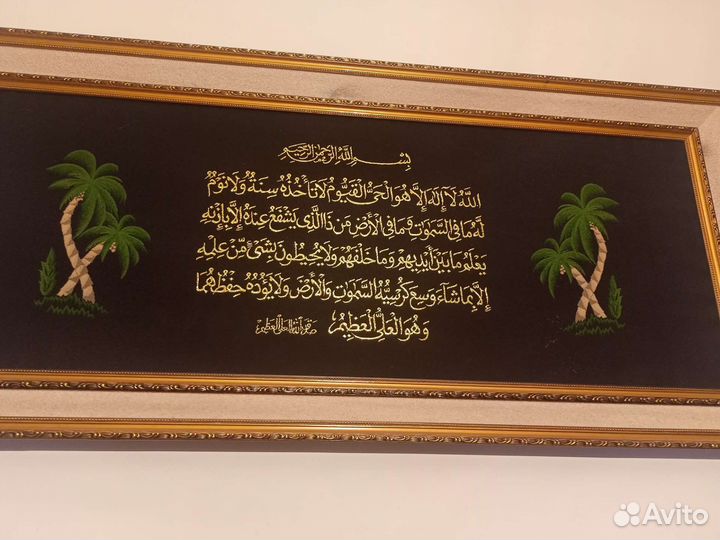 بِسْمِ اللهِ الرَّحْمٰنِ الرَّحِيمِ
اللهُ لَآ إِلٰهَ إِلَّا هُوَ الْحَيُّ الْقَيُّومُ لَا تَأْخُذُهُ سِنَةٌ وَلَا نَوْمٌ
لَّهُ مَا فِي السَّمٰوٰتِ وَمَا فِي الْأَرْضِ مَن ذَا الَّذِي يَشْفَعُ عِندَهُ إِلَّا بِإِذْنِهِ
يَعْلَمُ مَا بَيْنَ أَيْدِيهِمْ وَمَا خَلْفَهُمْ وَلَا يُحِيطُونَ بِشَيْءٍ مِّنْ عِلْمِهِ
إِلَّا بِمَا شَآءَ وَسِعَ كُرْسِيُّهُ السَّمٰوٰتِ وَالْأَرْضَ وَلَا يَؤُدُهُ حِفْظُهُمَا
وَهُوَ الْعَلِيُّ الْعَظِيمُ صدق الله العلي العظيم
Avito